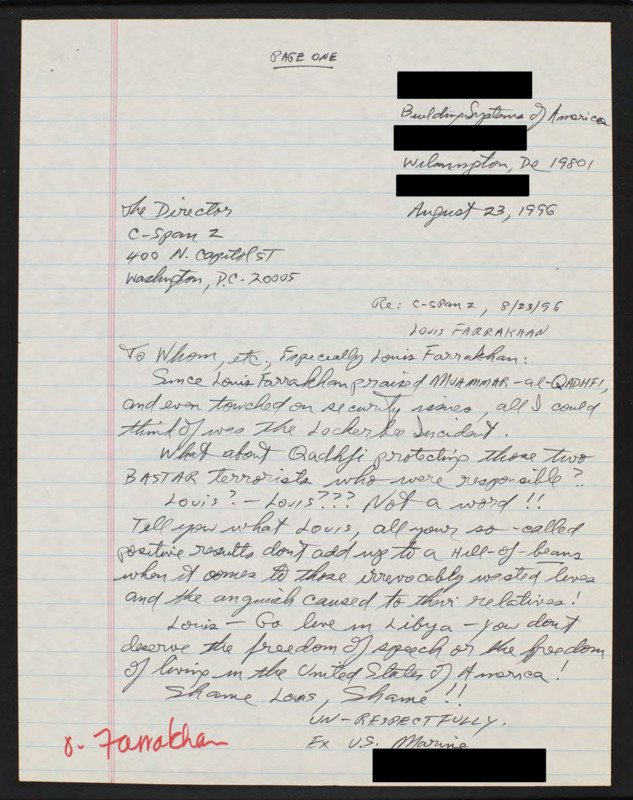 PAGE ONE
Building Systems of America
Wilmington, De 19801
August 23, 1996
The Director
C-Span 2
400 N. Capitol ST
Washington, D.C. 20005
Re: C-Span 2, 8/23/96
Louis FARRAKHAN
To Whom, etc., Especially Louis Farrakhan:
Since Louis Farrakhan praised MUAMMAR-al-QADHFI,
and even touched on security issues, all I could
think of was the Lockerbee Incident.
What about Qadhfi protecting those two
BASTAR terrorists who were responsible?
Louis? - Louis??? Not a word!!
Tell you what Louis, all your so-called
positive results don't add up to a Hill-of-beans
when it comes to those irrevocably wasted lives
and the anguish caused to their relatives!
Louis - Go live in Libya - you dont
deserve the freedom of speech or the freedom
of living in the United States of America!
Shame Louis, Shame!!
UN-RESPECTFULLY.
Ex U.S. Marine
Farrakhan